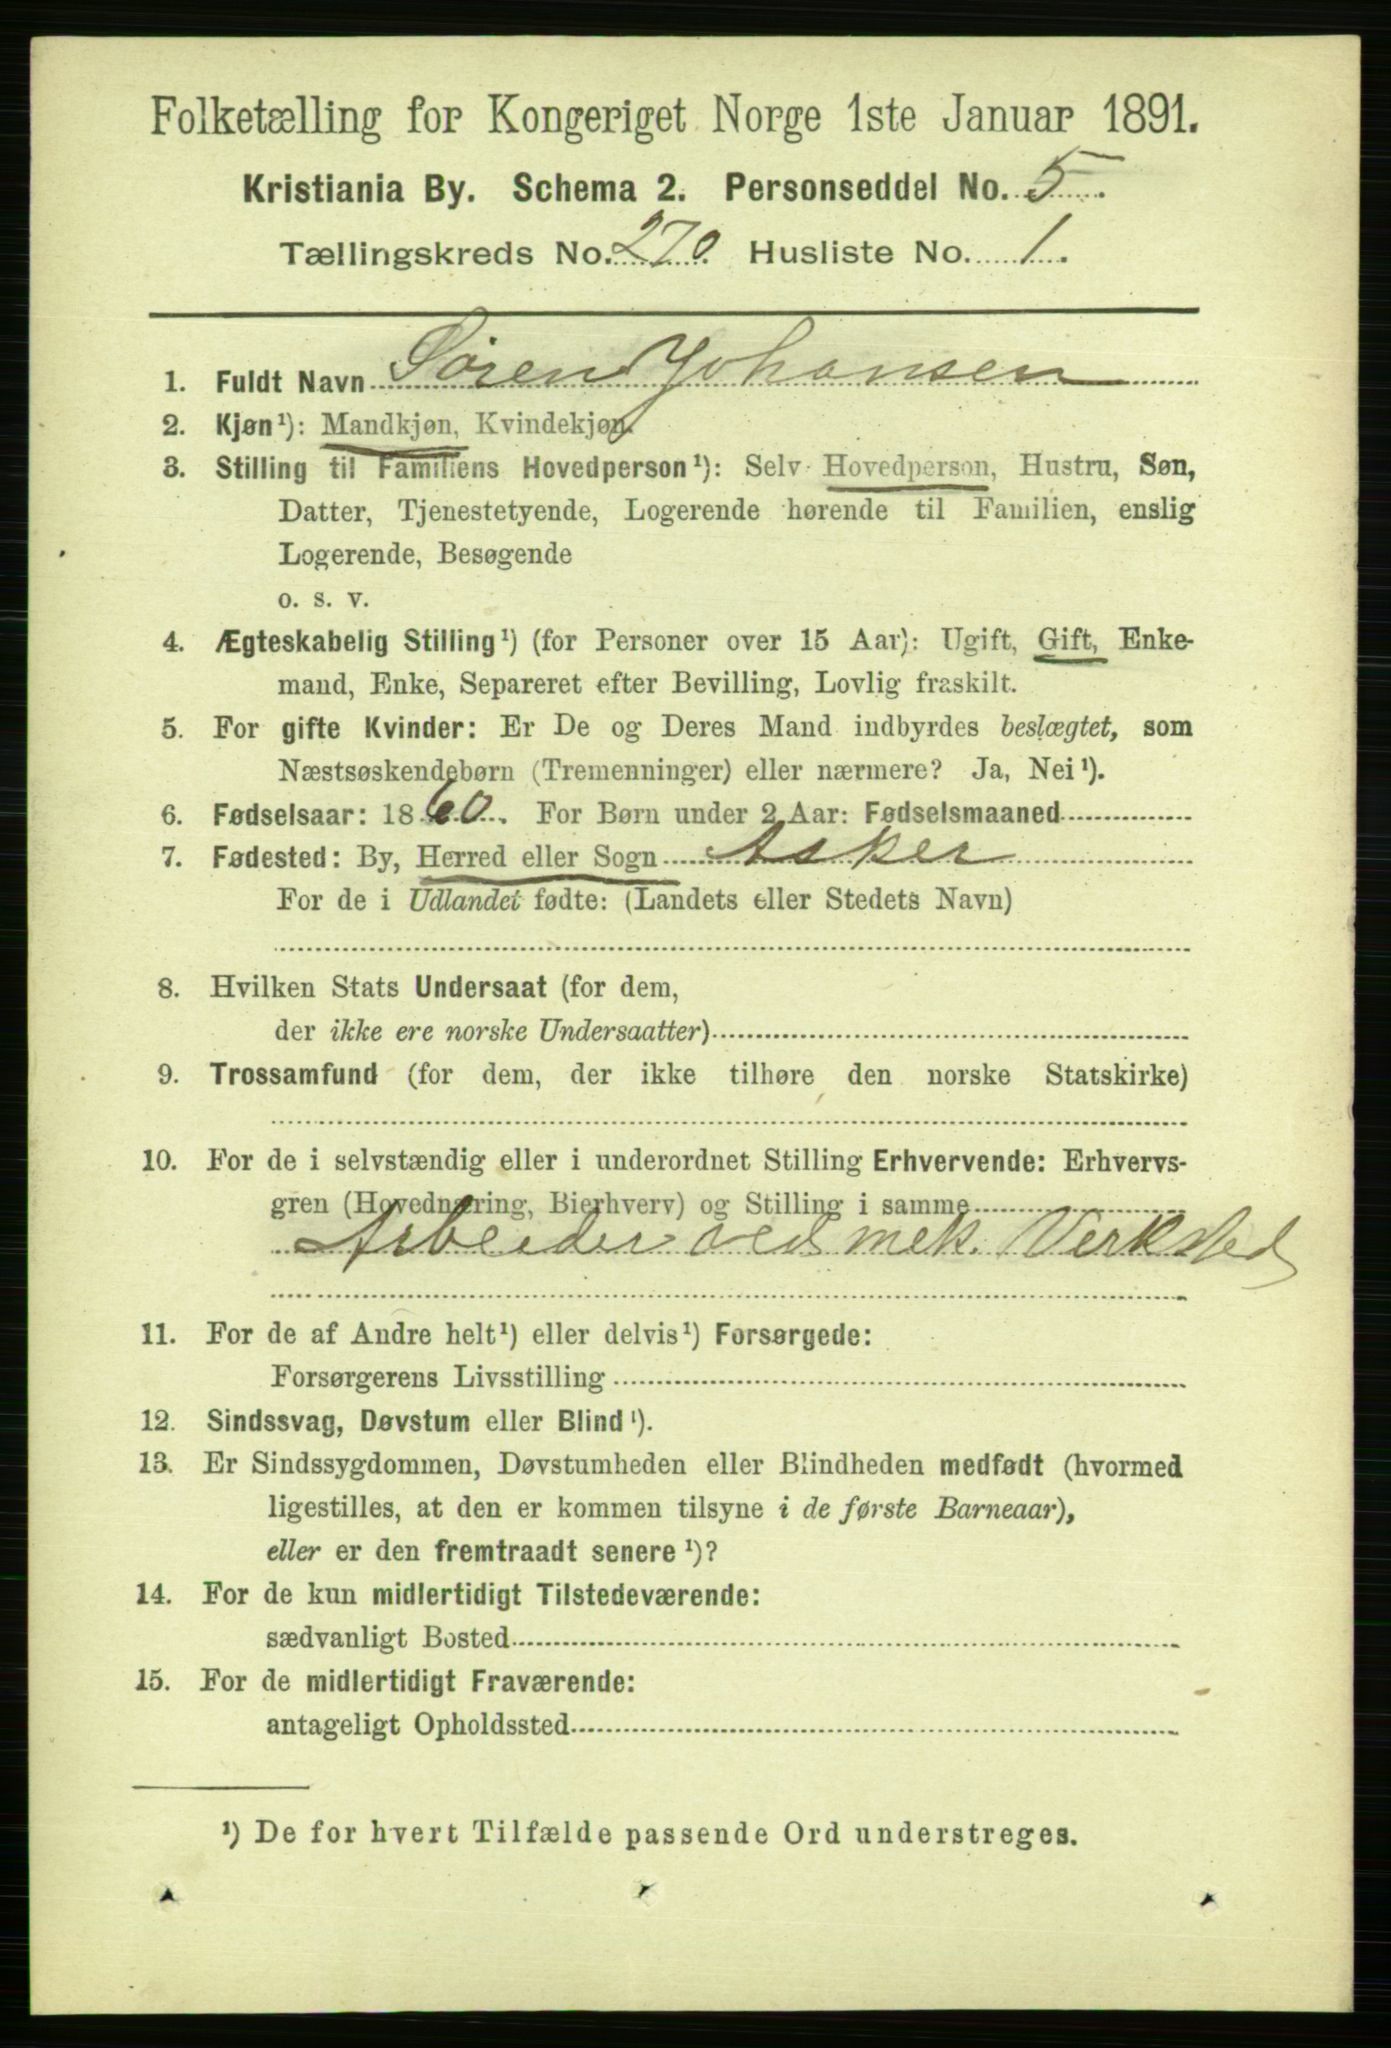 Folketælling for Kongeriget Norge 1ste Januar 1891.
Kristiania By. Schema 2. Personseddel No. 5.
Tællingskreds No. 270. Husliste No. 1.
1. Fuldt Navn Søren Johansen
2. Kjøn¹): Mandkjøn, Kvindekjøn.
3. Stilling til Familiens Hovedperson¹): Selv Hovedperson, Hustru, Søn,
Datter, Tjenestetyende, Logerende hørende til Familien, enslig
Logerende, Besøgende
o. s. v.
4. Ægteskabelig Stilling¹) (for Personer over 15 Aar): Ugift, Gift, Enke-
mand, Enke, Separeret efter Bevilling, Lovlig fraskilt.
5. For gifte Kvinder: Er De og Deres Mand indbyrdes beslægtet, som
Næstsøskendebørn (Tremenninger) eller nærmere? Ja, Nei¹).
6. Fødselsaar: 1860. For Børn under 2 Aar: Fødselsmaaned
7. Fødested: By, Herred eller Sogn Asker
For de i Udlandet fødte: (Landets eller Stedets Navn)
8. Hvilken Stats Undersaat (for dem,
der ikke ere norske Undersaatter)
9. Trossamfund (for dem, der ikke tilhøre den norske Statskirke)
10. For de i selvstændig eller i underordnet Stilling Erhvervende: Erhvervs-
gren (Hovednæring, Bierhverv) og Stilling i samme
Arbeider ved mek. Verksted
11. For de af Andre helt¹) eller delvis¹) Forsørgede:
Forsørgerens Livsstilling
12. Sindssvag, Døvstum eller Blind¹).
13. Er Sindssygdommen, Døvstumheden eller Blindheden medfødt (hvormed
ligestilles, at den er kommen tilsyne i de første Barneaar),
eller er den fremtraadt senere¹)?
14. For de kun midlertidigt Tilstedeværende:
sædvanligt Bosted
15. For de midlertidigt Fraværende:
antageligt Opholdssted
¹) De for hvert Tilfælde passende Ord understreges.